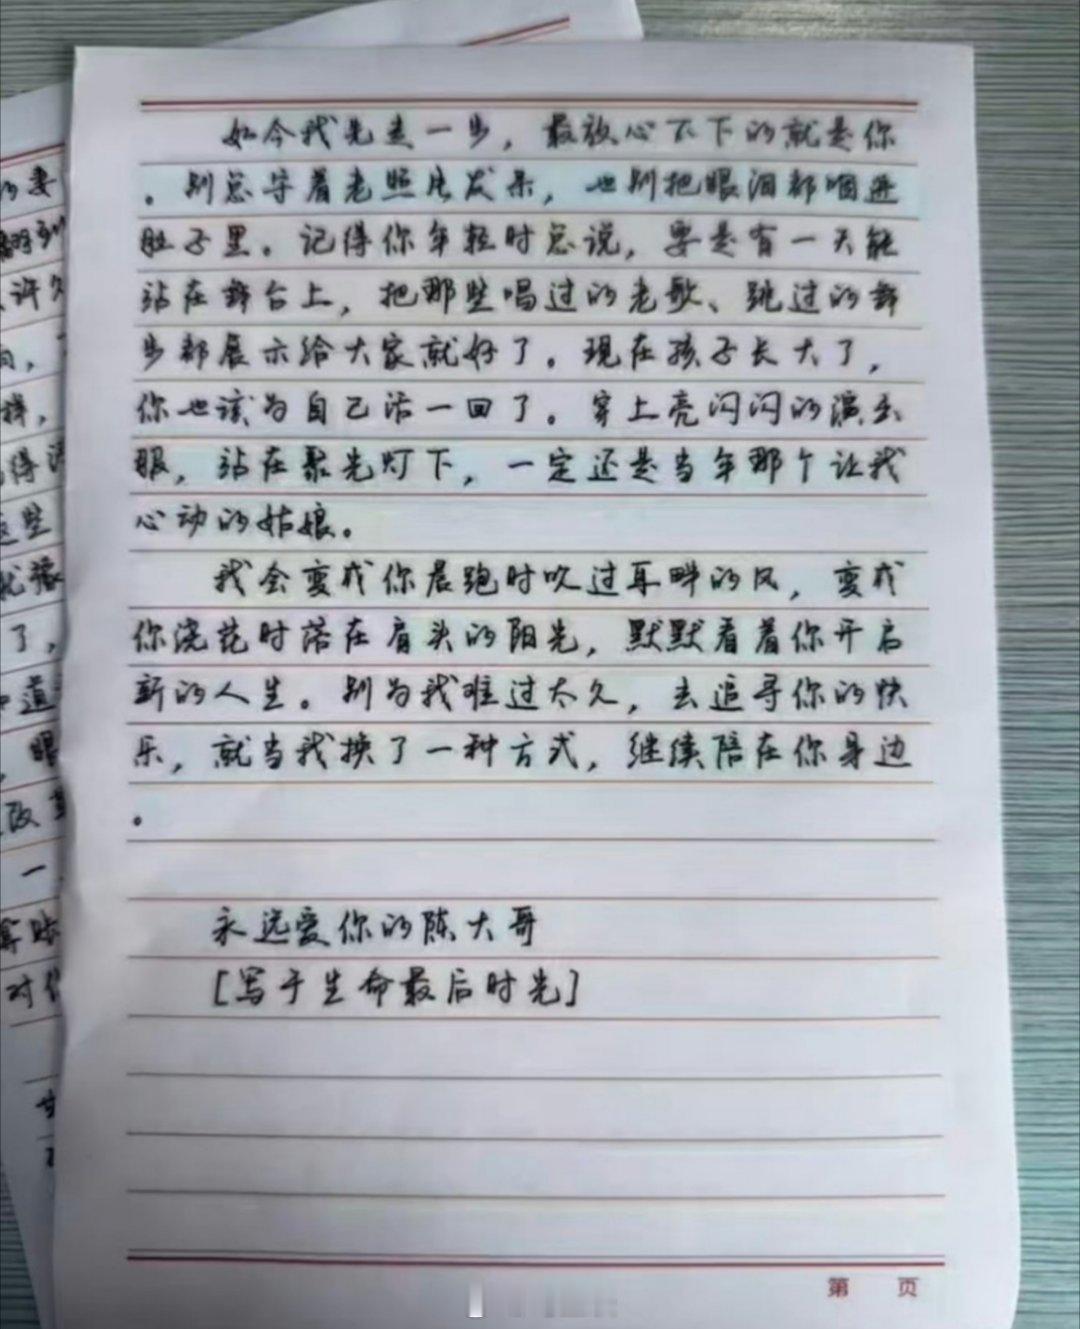 如今我先走一步，最放心不下的就是你
。别总守着老照片发呆，也别把眼泪都咽进
肚子里。记得你年轻时总说，要是有一天能
站在舞台上，把那些唱过的老歌、跳过的舞
步都展示给大家就好了。现在孩子长大了，
你也该为自己活一回了。穿上亮闪闪的演出
服，站在聚光灯下，一定还是当年那个让我
心动的姑娘。
我会变成你晨跑时吹过耳畔的风，变成
你浇花时落在肩头的阳光，默默看着你开启
新的人生。别为我难过太久，去追寻你的快
乐，就当我换了一种方式，继续陪在你身边
。
永远爱你的陈大哥
[写于生命最后时光]
第 页